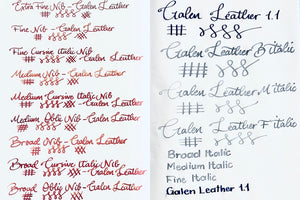 Extra Fine Nib - Galen Leather
Fine Nib - Galen Leather
Fine Cursive Italic Nib
- Galen Leather
Medium Nib - Galen Leather
Medium Cursive Italic Nib
- Galen Leather
Medium Oblic Nib - Galen Leather
Broad Nib - Galen Leather
Broad - Cursive Italic Nib
- Galen Leather
Broad Oblic Nib - Galen Leather
Galen Leather 1.1
Galen Leather B italic
Galen Leather M italic
Galen Leather F italic
Broad Italic
Medium Italic
Fine Italic
Galen Leather 1.1